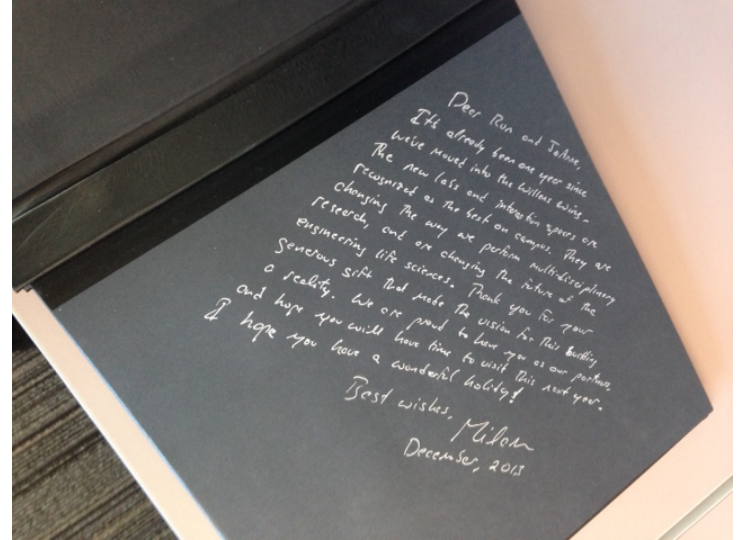 Dear Ron and JoAnne,
It's already been one year since
we've moved into the Willens Wing.
The new labs and interaction spaces are
recognized as the best on campus. They are
changing the way we perform multidisciplinary
research, and are changing the future of the
engineering life sciences. Thank you for your
generous gift that made the vision for this building
a reality. We are proud to have you as our partners,
and hope you will have time to visit this next year.
I hope you have a wonderful holiday!
Best wishes,
Milan
December, 2013